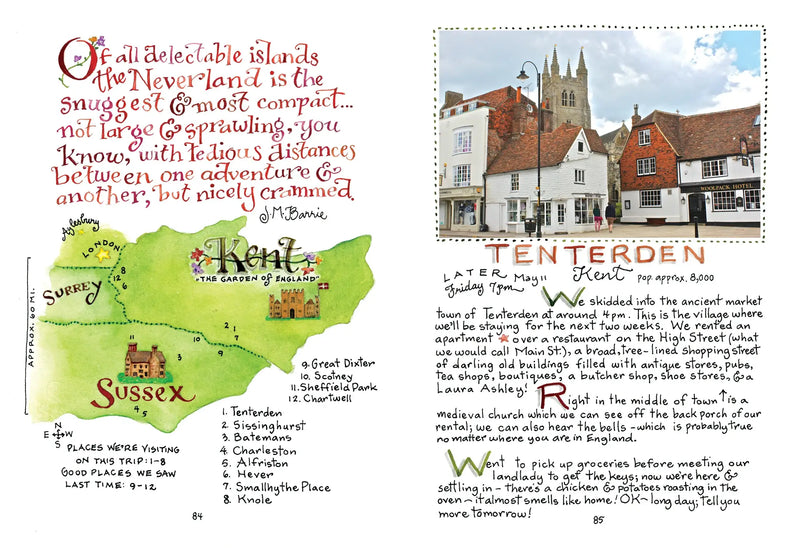 Of all delectable islands
the Neverland is the
snuggest & most compact...
not large & sprawling, you
know, with tedious distances
between one adventure &
another, but nicely crammed.
J.M. Barrie
Aylesbury
LONDON
Kent
"THE GARDEN OF ENGLAND"
SURREY
8
12
6
2
1
7
3
10
9
11
Sussex
4
5
APPROX. 60 MI.
N
E
W
S
9. Great Dixter
10. Scotney
11. Sheffield Park
12. Chartwell
1. Tenterden
2 Sissinghurst
3. Batemans
4 Charleston
5. Alfriston
6. Hever
7. Smallhythe Place
8. Knole
PLACES WE'RE VISITING
ON THIS TRIP: 1-8
GOOD PLACES WE SAW
LAST TIME: 9-12
84
WOOLPACK HOTEL
TENTERDEN
LATER May 11
Friday 7pm
Kent pop. approx. 8,000
We skidded into the ancient market
town of Tenterden at around 4pm. This is the village where
we'll be staying for the next two weeks. We rented an
apartment ★ over a restaurant on the High Street (what
we would call Main St.), a broad, tree-lined shopping street
of darling old buildings filled with antique stores, pubs,
tea shops, boutiques, a butcher shop, shoe stores, & a
Laura Ashley! Right in the middle of town ↑ is a
medieval church which we can see off the back porch of our
rental; we can also hear the bells - which is probably true
no matter where you are in England.
Went to pick up groceries before meeting our
landlady to get the keys; now we're here &
settling in - there's a chicken & potatoes roasting in the
oven ~ it almost smells like home! OK ~ long day; tell you
more tomorrow!
85